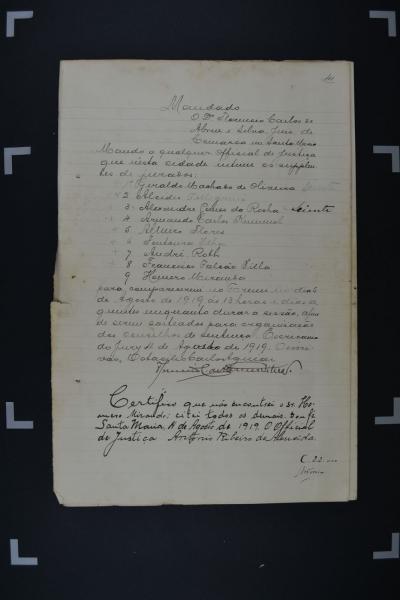 Mandado
O Dr. Florencio Carlos de
Abreu e Silva, Juiz de
Comarca em Santa Maria
Mando a qualquer official de justiça
que nesta cidade intime os supplen-
tes de jurados:
1 Geraldo Machado de Oliveira
2 Alcides
3 Alexandre Cunes da Rocha - Sciente
4 Armando Carlos
5 Alvaro Flores
6 Fontoura Ilha
7 André Roth
8 Francisco Falcão Villa
9 Homero Miranda
para comparecerem no Forum no dia 6
de Agosto de 1919, ás 13 horas e dias se
guintes enquanto durar a sessão, afim
de serem sorteados para organisação
dos conselhos de sentença. Escrivania
do Jury, 4 de Agosto de 1919. O escri-
vão, Octacilio Carlos Aguiar
Certifico que não encontrei o sr. Ho-
mero Miranda; citei todos os demais. Dou fé.
Santa Maria, 4 de Agosto de 1919. O Official
de Justiça Antonio Ribeiro de Almeida.